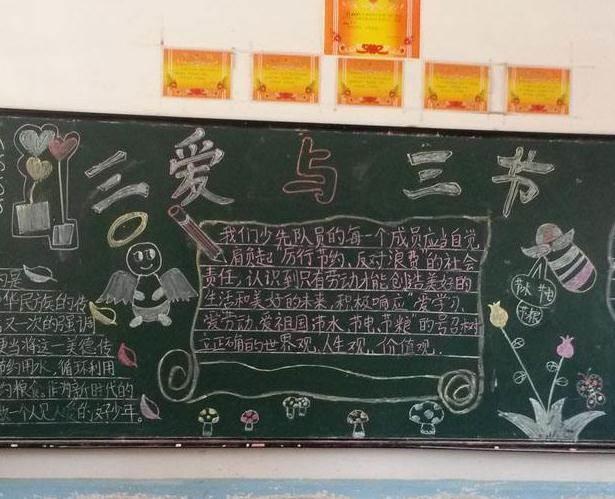 三爱与三节
我们少先队员的每一个成员应当自觉
肩负起"厉行节约、反对浪费"的社会
责任,认识到只有劳动才能创造美好的
生活和美好的未来,积极响应"爱学习、
爱劳动、爱祖国、节水、节电、节粮"的号召,树
立正确的世界观、人生观、价值观。
节水 节电
节粮
的是
华民族的传
又一次的强调
当将这一美德传
节约用水、循环利用
约粮食。作为新时代的
做一个人见人爱的好少年。